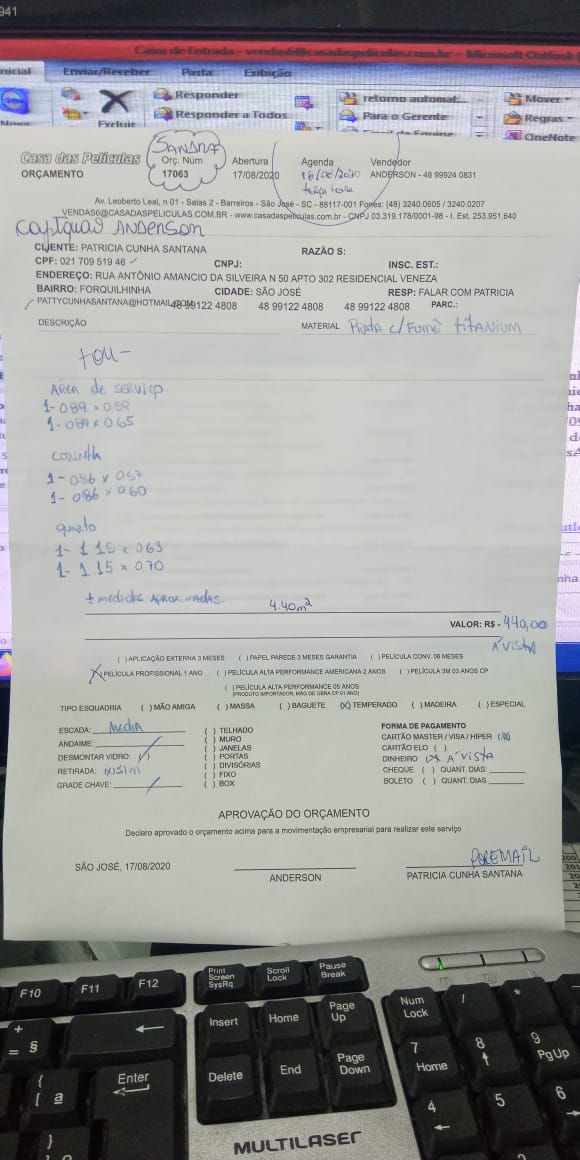 941
Caixa de Entrada - vendas6@casadaspeliculas.com.br - Microsoft Outlook
Enviar/Receber Pasta Exibição
Responder
Responder a Todos
Excluir
retorno automat...
Para o Gerente
Mover
Regras
OneNote
Casa das Películas
ORÇAMENTO
SANDRA
Orç. Núm
17063
Abertura
17/08/2020
Agenda
terça feira
Vendedor
ANDERSON - 48 99924 0831
Av. Leoberto Leal, n 01 - Salas 2 - Barreiros - São José - SC - 88117-001 Fones: (48) 3240.0605 / 3240.0207
VENDAS6@CASADASPELICULAS.COM.BR - www.casadaspeliculas.com.br - CNPJ 03.319.178/0001-98 - I. Est. 253.951.640
ANDERSON
CLIENTE: PATRICIA CUNHA SANTANA RAZÃO S:
CPF: 021 709 519 46 CNPJ: INSC. EST.:
ENDEREÇO: RUA ANTÔNIO AMANCIO DA SILVEIRA N 50 APTO 302 RESIDENCIAL VENEZA
BAIRRO: FORQUILHINHA CIDADE: SÃO JOSÉ RESP: FALAR COM PATRICIA
PATTYCUNHASANTANA@HOTMAIL.COM 48 99122 4808 48 99122 4808 48 99122 4808 PARC.:
DESCRIÇÃO MATERIAL Prata c/ Fumê titANIUM
AREA de serviço
1- 089 x
1- 089 x 065
cozinha
1- 086 x 057
1- 086 x 060
quarto
1- 1.15 x 063
1- 1.15 x 070
± medidas APROXIMADAS.
4.40m²
VALOR: R$ - 440,00
À VISTA
( ) APLICAÇÃO EXTERNA 3 MESES ( ) PAPEL PAREDE 3 MESES GARANTIA ( ) PELÍCULA CONV. 06 MESES
(X) PELÍCULA PROFISSIONAL 1 ANO ( ) PELÍCULA ALTA PERFORMANCE AMERICANA 2 ANOS ( ) PELÍCULA 3M 03 ANOS CP
( ) PELÍCULA ALTA PERFORMANCE 05 ANOS
(PRODUTO IMPORTADOR, MÃO DE OBRA CP 01 ANO)
TIPO ESQUADRIA ( ) MÃO AMIGA ( ) MASSA ( ) BAGUETE (X) TEMPERADO ( ) MADEIRA ( ) ESPECIAL
ESCADA: Media
ANDAIME:
DESMONTAR VIDRO:
RETIRADA: (x) SIM
GRADE CHAVE:
( ) TELHADO
( ) MURO
( ) JANELAS
( ) PORTAS
( ) DIVISÓRIAS
( ) FIXO
( ) BOX
FORMA DE PAGAMENTO
CARTÃO MASTER / VISA / HIPER (X)
CARTÃO ELO ( )
DINHEIRO (X) À VISTA
CHEQUE ( ) QUANT. DIAS:
BOLETO ( ) QUANT. DIAS
APROVAÇÃO DO ORÇAMENTO
Declaro aprovado o orçamento acima para a movimentação empresarial para realizar este serviço
SÃO JOSÉ, 17/08/2020
ANDERSON
POR EMAIL
PATRICIA CUNHA SANTANA
F10 F11 F12
Print Screen SysRq
Scroll Lock
Pause Break
Insert Home Page Up
Num Lock / *
Delete End Page Down
7 Home 8 9 PgUp
Enter
4 5 6
MULTILASER